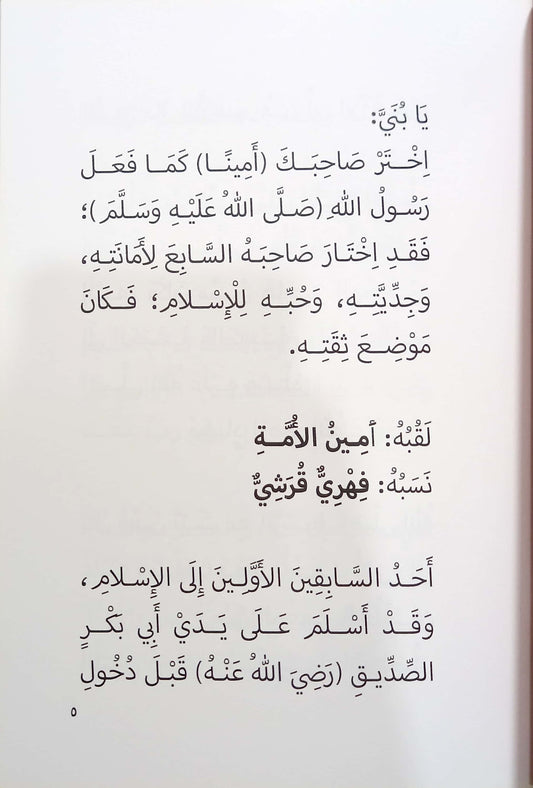 يَا بُنَيَّ:
اِخْتَرْ صَاحِبَكَ (أَمِينًا) كَمَا فَعَلَ
رَسُولُ اللهِ (صَلَّى اللهُ عَلَيْهِ وَسَلَّمَ)؛
فَقَدِ اِخْتَارَ صَاحِبَهُ السَّابِعَ لِأَمَانَتِهِ،
وَجِدِّيَّتِهِ، وَحُبِّهِ لِلْإِسْلَامِ؛ فَكَانَ
مَوْضِعَ ثِقَتِهِ.
لَقَبُهُ: أَمِينُ الأُمَّةِ
نَسَبُهُ: فِهْرِيٌّ قُرَشِيٌّ
أَحَدُ السَّابِقِينَ الأَوَّلِينَ إِلَى الإِسْلَامِ،
وَقَدْ أَسْلَمَ عَلَى يَدَيْ أَبِي بَكْرٍ
الصِّدِّيقِ (رَضِيَ اللهُ عَنْهُ) قَبْلَ دُخُولِ
٥